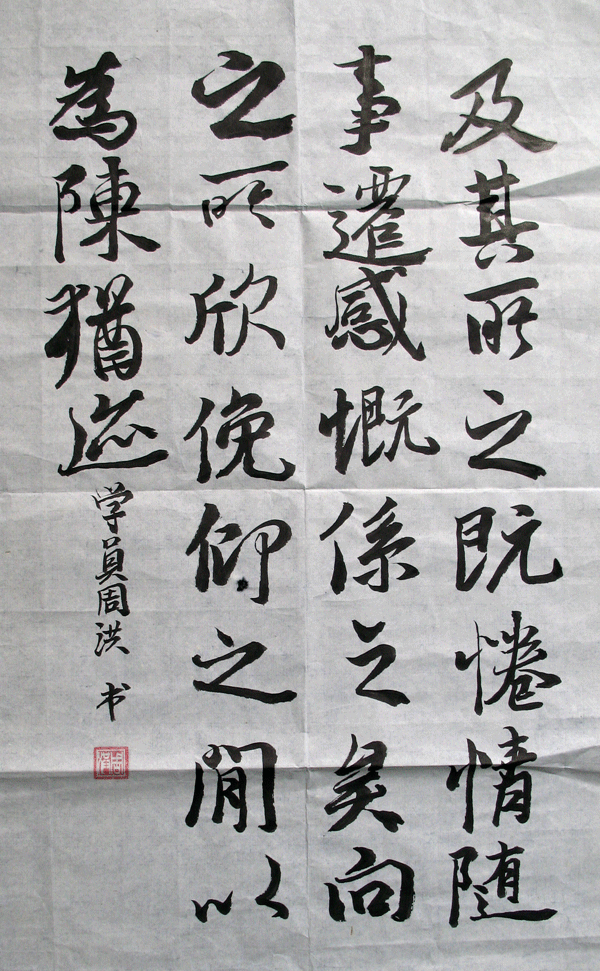 及其所之既惓情随
事遷感慨係之矣向
之所欣俛仰之間以
為陳猶迹
学員周洪 书